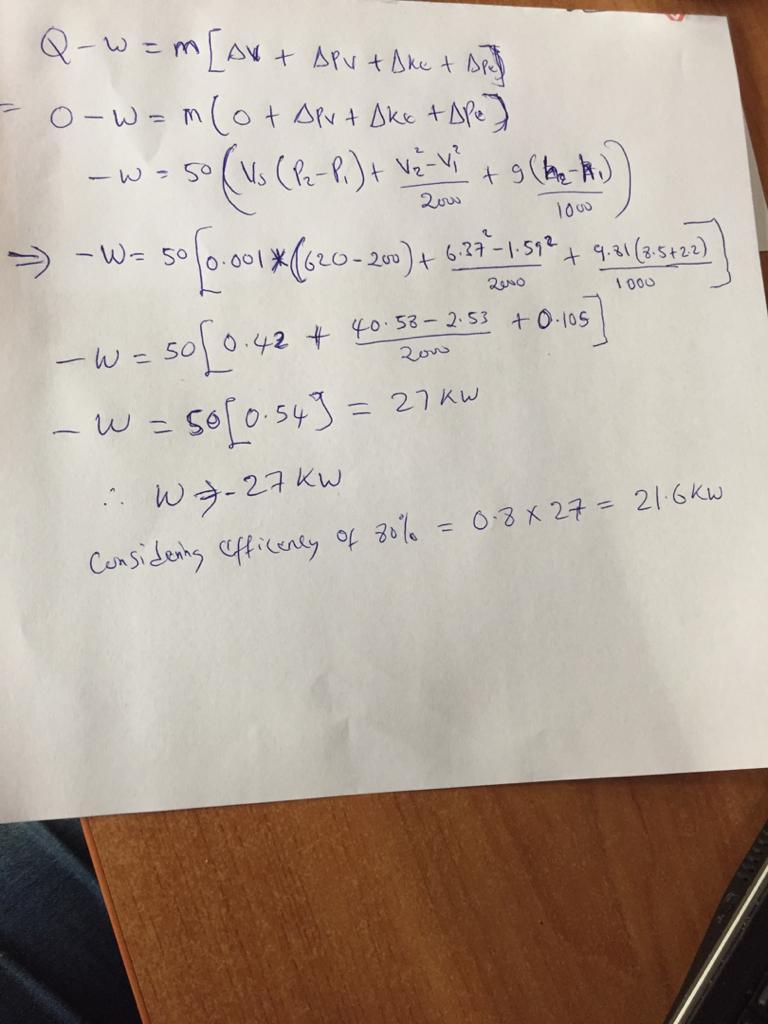 Q - W = m [ ΔV + ΔPV + ΔKe + ΔPe ]
= 0 - W = m ( 0 + ΔPv + Δke + ΔPe )
- W = 50 ( Vs (P₂ - P₁) + (V₂² - V₁²)/2000 + g (h₂ - h₁)/1000 )
⇒ - W = 50 [ 0.001 * (620 - 200) + (6.37² - 1.59²)/2000 + 9.81 (8.5 + 2.2)/1000 ]
- W = 50 [ 0.42 + (40.58 - 2.53)/2000 + 0.105 ]
- W = 50 [ 0.54 ] = 27 KW
∴ W ⇒ - 27 KW
Considering efficency of 80% = 0.8 × 27 = 21.6 KW